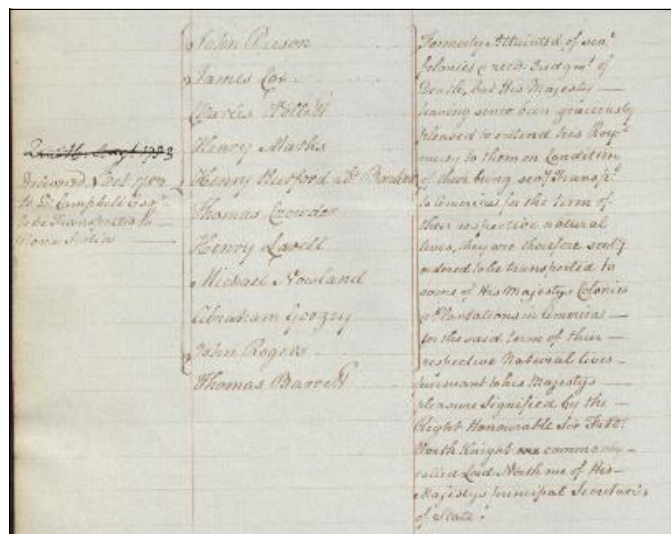 Delivered 1 Oct. 1783
to D. Campbell Esqr.
to be Transported to
Nova Scotia
John Pieson
James Cox
Charles
Henry Maths
Henry Hurford als. Barnard
Thomas Crowder
Henry Lavell
Michael Nowland
Abraham Geozry
John Rogers
Thomas Barrett
Formerly Attainted of sevl.
felonies & recd. Judgmt. of
Death, but His Majesty
having since been graciously
pleased to extend his Royl.
mercy to them on Condition
of their being sevy. Transpd.
to America for the term of
their respective natural
lives, they are therefore sevly.
ordered to be transported to
some of His Majestys Colonies
or Plantations in America
for the said term of their
respective Natural lives
pursuant to his Majestys
pleasure Signified by the
Right Honourable
North Knight commonly
called Lord North one of His
Majestys principal Secretaries
of State.